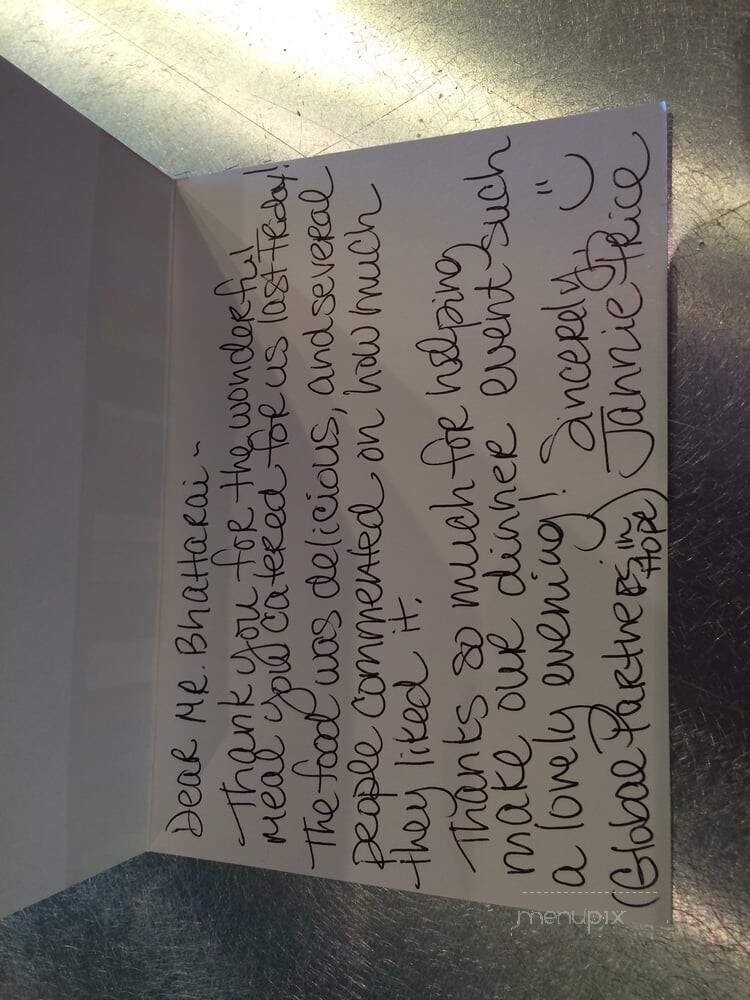 Dear Mr. Bhattarai ~
Thank you for the wonderful
meal you catered for us last Friday!
The food was delicious, and several
people commented on how much
they liked it.
Thanks so much for helping
make our dinner event such
a lovely evening! Sincerely,
(Global Partners in Hope) Jannie Price
menupix